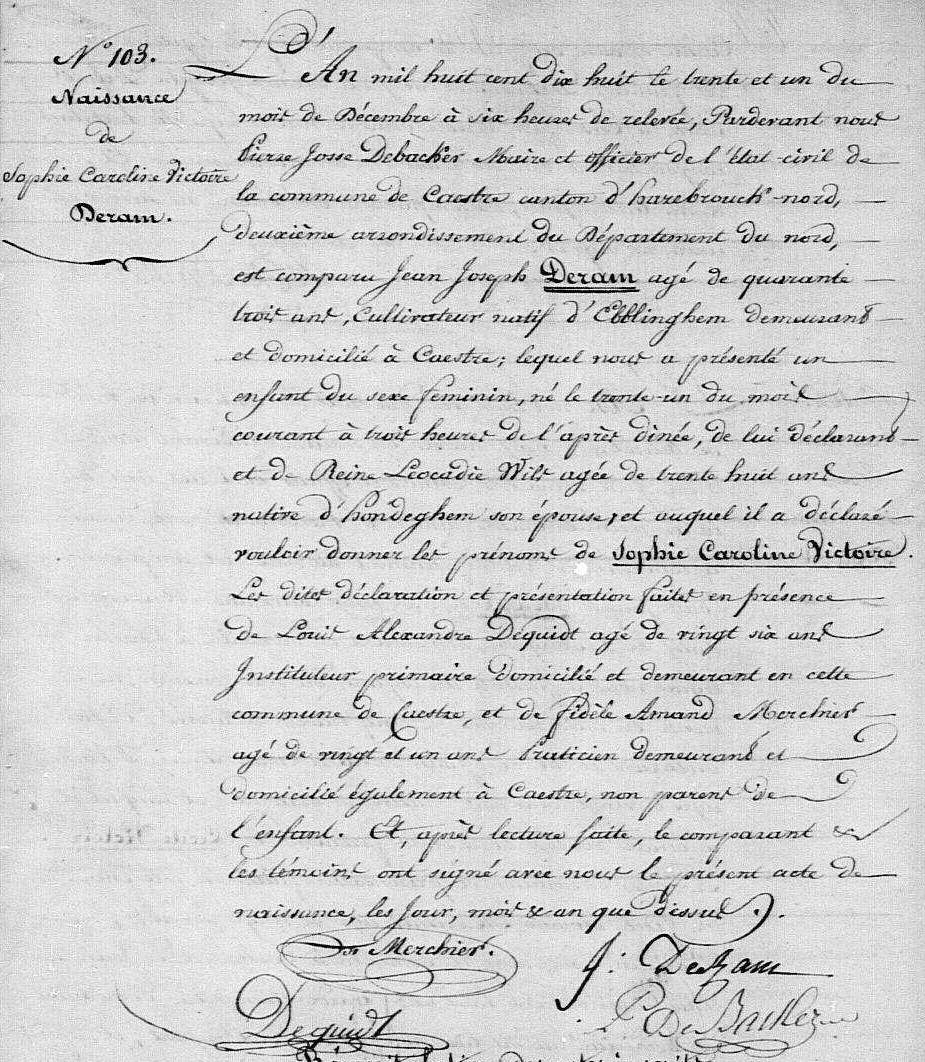 N° 103.
Naissance
de
Sophie Caroline Victoire
Deram.
L'An mil huit cent dix huit le trente et un du
mois de Décembre à six heures de relevée, Pardevant nous
Pierre Josse Debacker Maire et officier de l'état-civil de
la commune de Caestre canton d'hazebrouck-nord,
deuxième arrondissement du Département du nord,
est comparu Jean Joseph Deram agé de quarante
trois ans, Cultivateur natif d'Ebblinghem demeurant
et domicilié à Caestre; lequel nous a présenté un
enfant du sexe feminin, né le trente-un du mois
courant à trois heures de l'après dinée, de lui déclarant
et de Reine Léocadie Wils agée de trente huit ans
native d'hondeghem son épouse, et auquel il a déclaré
vouloir donner les prénoms de Sophie Caroline Victoire.
Les dites déclaration et présentation faites en présence
de Louis Alexandre Dequidt agé de vingt six ans
Instituteur primaire domicilié et demeurant en cette
commune de Caestre, et de fidèle Amand Merchier
agé de vingt et un ans Praticien demeurant et
domicilié également à Caestre, non parens de
l'enfant. Et, après lecture faite, le comparant &
les témoins ont signé avec nous le présent acte de
naissance, les Jour, mois & an que dessus.
Merchier.
J: DeRam
Dequidt
P. De Backer